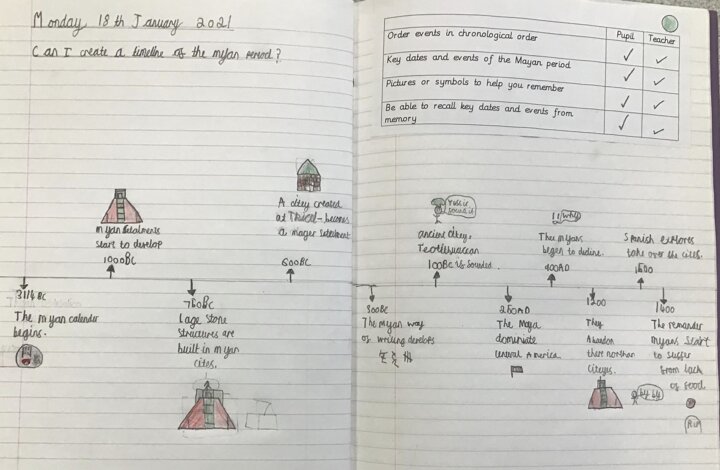 Monday 18th January 2021
Can I create a timeline of the myan period?
Pupil Teacher
Order events in chronological order
Key dates and events of the Mayan period
Pictures or symbols to help you remember
Be able to recall key dates and events from
memory
myan
start to develop
1000BC
A citey created
at becomes
a mager
600BC
3114 BC
The myan calender
begins.
750BC
Lage Stone
Structures are
built in myan
cites.
ancient citey,
100BC is founded
The myans
begin to decline.
900AD
Spanish explores
take over the cites.
1500
300BC
The myan way
of writing develops
250AD
The Maya
dominate
central America
1200
They
Abandon
there northan
Citeys.
by by
1600
The remander
Myans start
to suffer
from lack
of food.
RIP